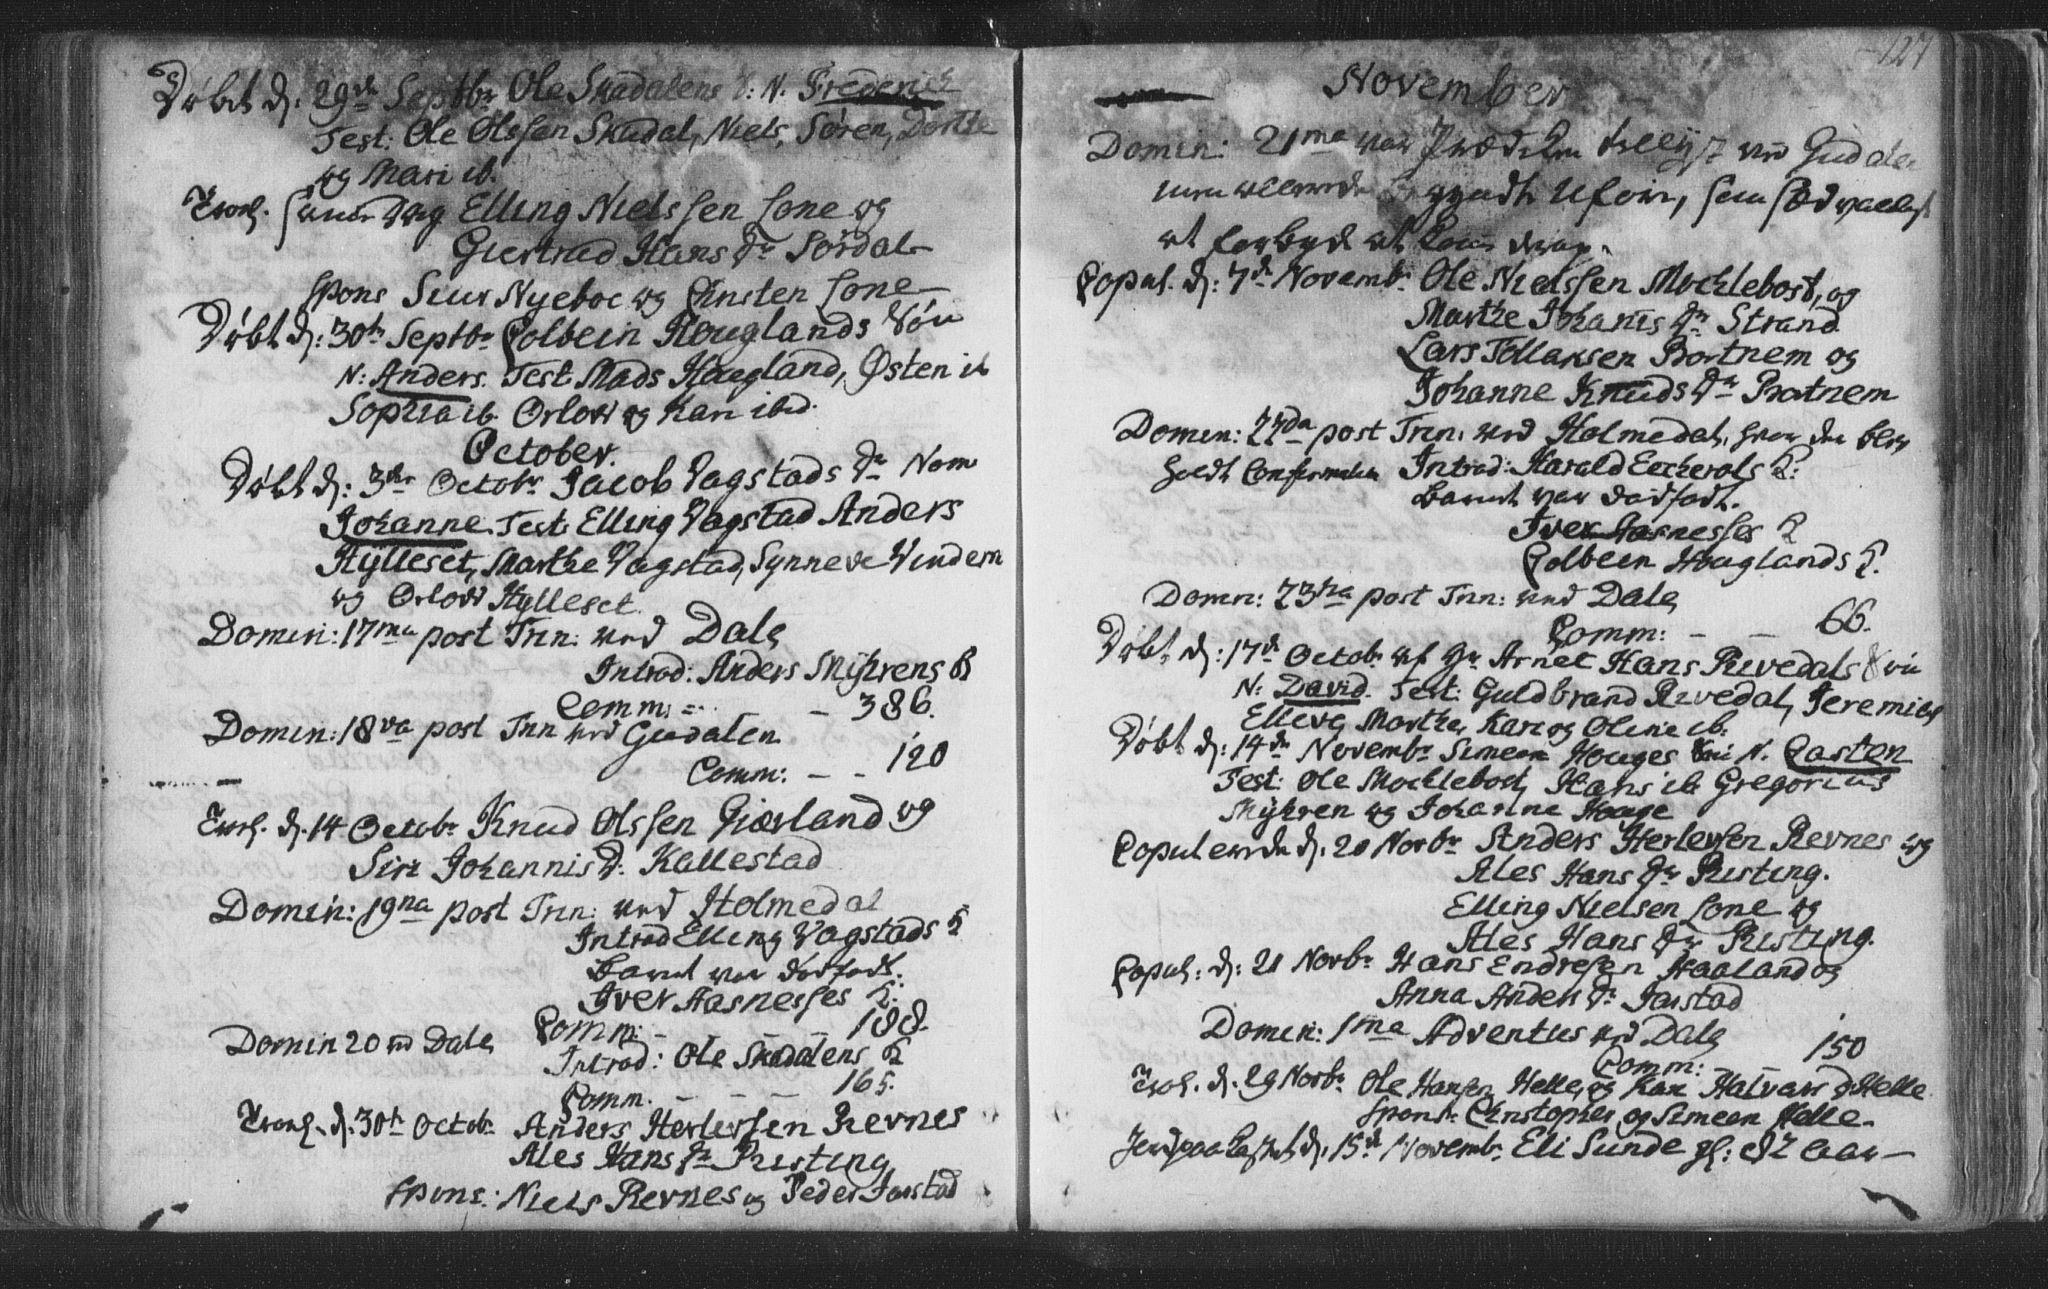 Døbt d: 29de Septbr Ole Skadalens d: N. Frederich
Test: Ole Olssen Skadal, Niels, Søren, Dorthe
og Mari ib.
Trol. samme Dag Elling Nielssen Lone og
Giertrud Hans dr Sørdal
Spons Siur Nyeboe og Christen Lone
Døbt d: 30te Septbr Colbein Houglands Søn
N: Anders. Test: Mads Hougland, Østen ib
Sophia ib. Orlow og Kari ibd.
October.
Døbt d: 3die Octobr Jacob Vagstads dr Nom
Johanne. Test: Elling Vagstad Anders
Hylleset, Marthe Vagstad, Synneve Vindem
og Orlow Hylleset.
Domin: 17ma post Trin: ved Dale
Introd: Anders Myhrens K
Comm: - 386.
Domin: 18va post Trin ved Gudalen
Comm: - - 120
Trol. d. 14 Octobr Knud Olssen Giørland og
Siri Johannis d: Kallestad
Domin: 19na post Trin: ved Holmedal
Introd Elling Vagstads K
Barnet var dødfødt.
Iver Aasnesses K.
Comm: - - - 188.
Domin 20 ved Dale
Introd: Ole Skadalens K
Comm. - - - 165.
Trol. d: 30te Octobr Anders Herlefsen Revnes
Ales Hans dr Risting
Spons: Niels Revnes og Peder Jarstad
127
November
Domin: 21ma var Prædiken ved Gudalen
som
at komme
Copul. d: 7de Novembr Ole Nielssen Mochlebost, og
Marthe Johanis dr Strand
Lars Tollaksen Bortnem og
Johanne Knuds dr Bortnem
Domin: 22da post Trin: ved Holmedal, hvor der blev
holdt Confirmation Introd: Harald Eecherols K:
Barnet var dødfødt.
Iver Aasnesses K
Colbein Houglands K.
Domin: 23tia post Trin: ved Dale
Comm: - - 66.
Døbt d: 17de Octobr af Hr Arnet Hans Revedals Søn
N: David. Test: Guldbrand Revedal, Jeremias
Elleve Marthe, Kari og Oline ib.
Døbt d: 14de Novembr Simeon Houges N. Carsten
Test: Ole Mochlebost, Hans ib Gregorius
Myhren og Johanne Houge
Copulerede d. 20 Novbr Anders Herlefsen Revnes og
Ales Hans dr Risting.
Elling Nielsen Lone og
Ales Hans dr Risting.
Copul: d: 21 Novbr Hans Endresen Haaland og
Anna Anders dr Jarstad
Domin: 1ma Adventus ved Dale
Comm: - - 150
Trol. d. 29 Novbr Ole Hansen Helle, og Kari Halvars d Helle
Spons: Christopher og Simeon Helle.
Jordpaakastet d. 15de Novembr Eli Sunde gl: 82 Aar